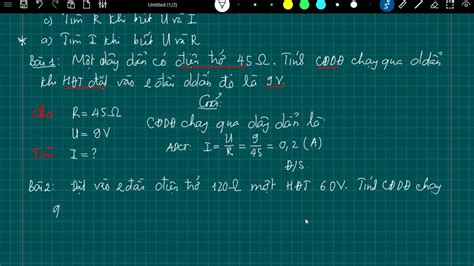 Untitled (1/2)
c) Tìm R khi biết U và I
* a) Tìm I khi biết U và R
Bài 1: Một dây dẫn có điện trở 45Ω. Tính CĐDĐ chạy qua ddẫn
khi HĐT đặt vào 2 đầu ddẫn đó là 9V.
Giải
Cho R = 45Ω
U = 9V
Tìm I = ?
CĐDĐ chạy qua dây dẫn là:
ADCT: I = U/R = 9/45 = 0,2 (A)
Đ/S.
Bài 2: Đặt vào 2 đầu điện trở 120Ω một HĐT 60V. Tính CĐDĐ chạy
q